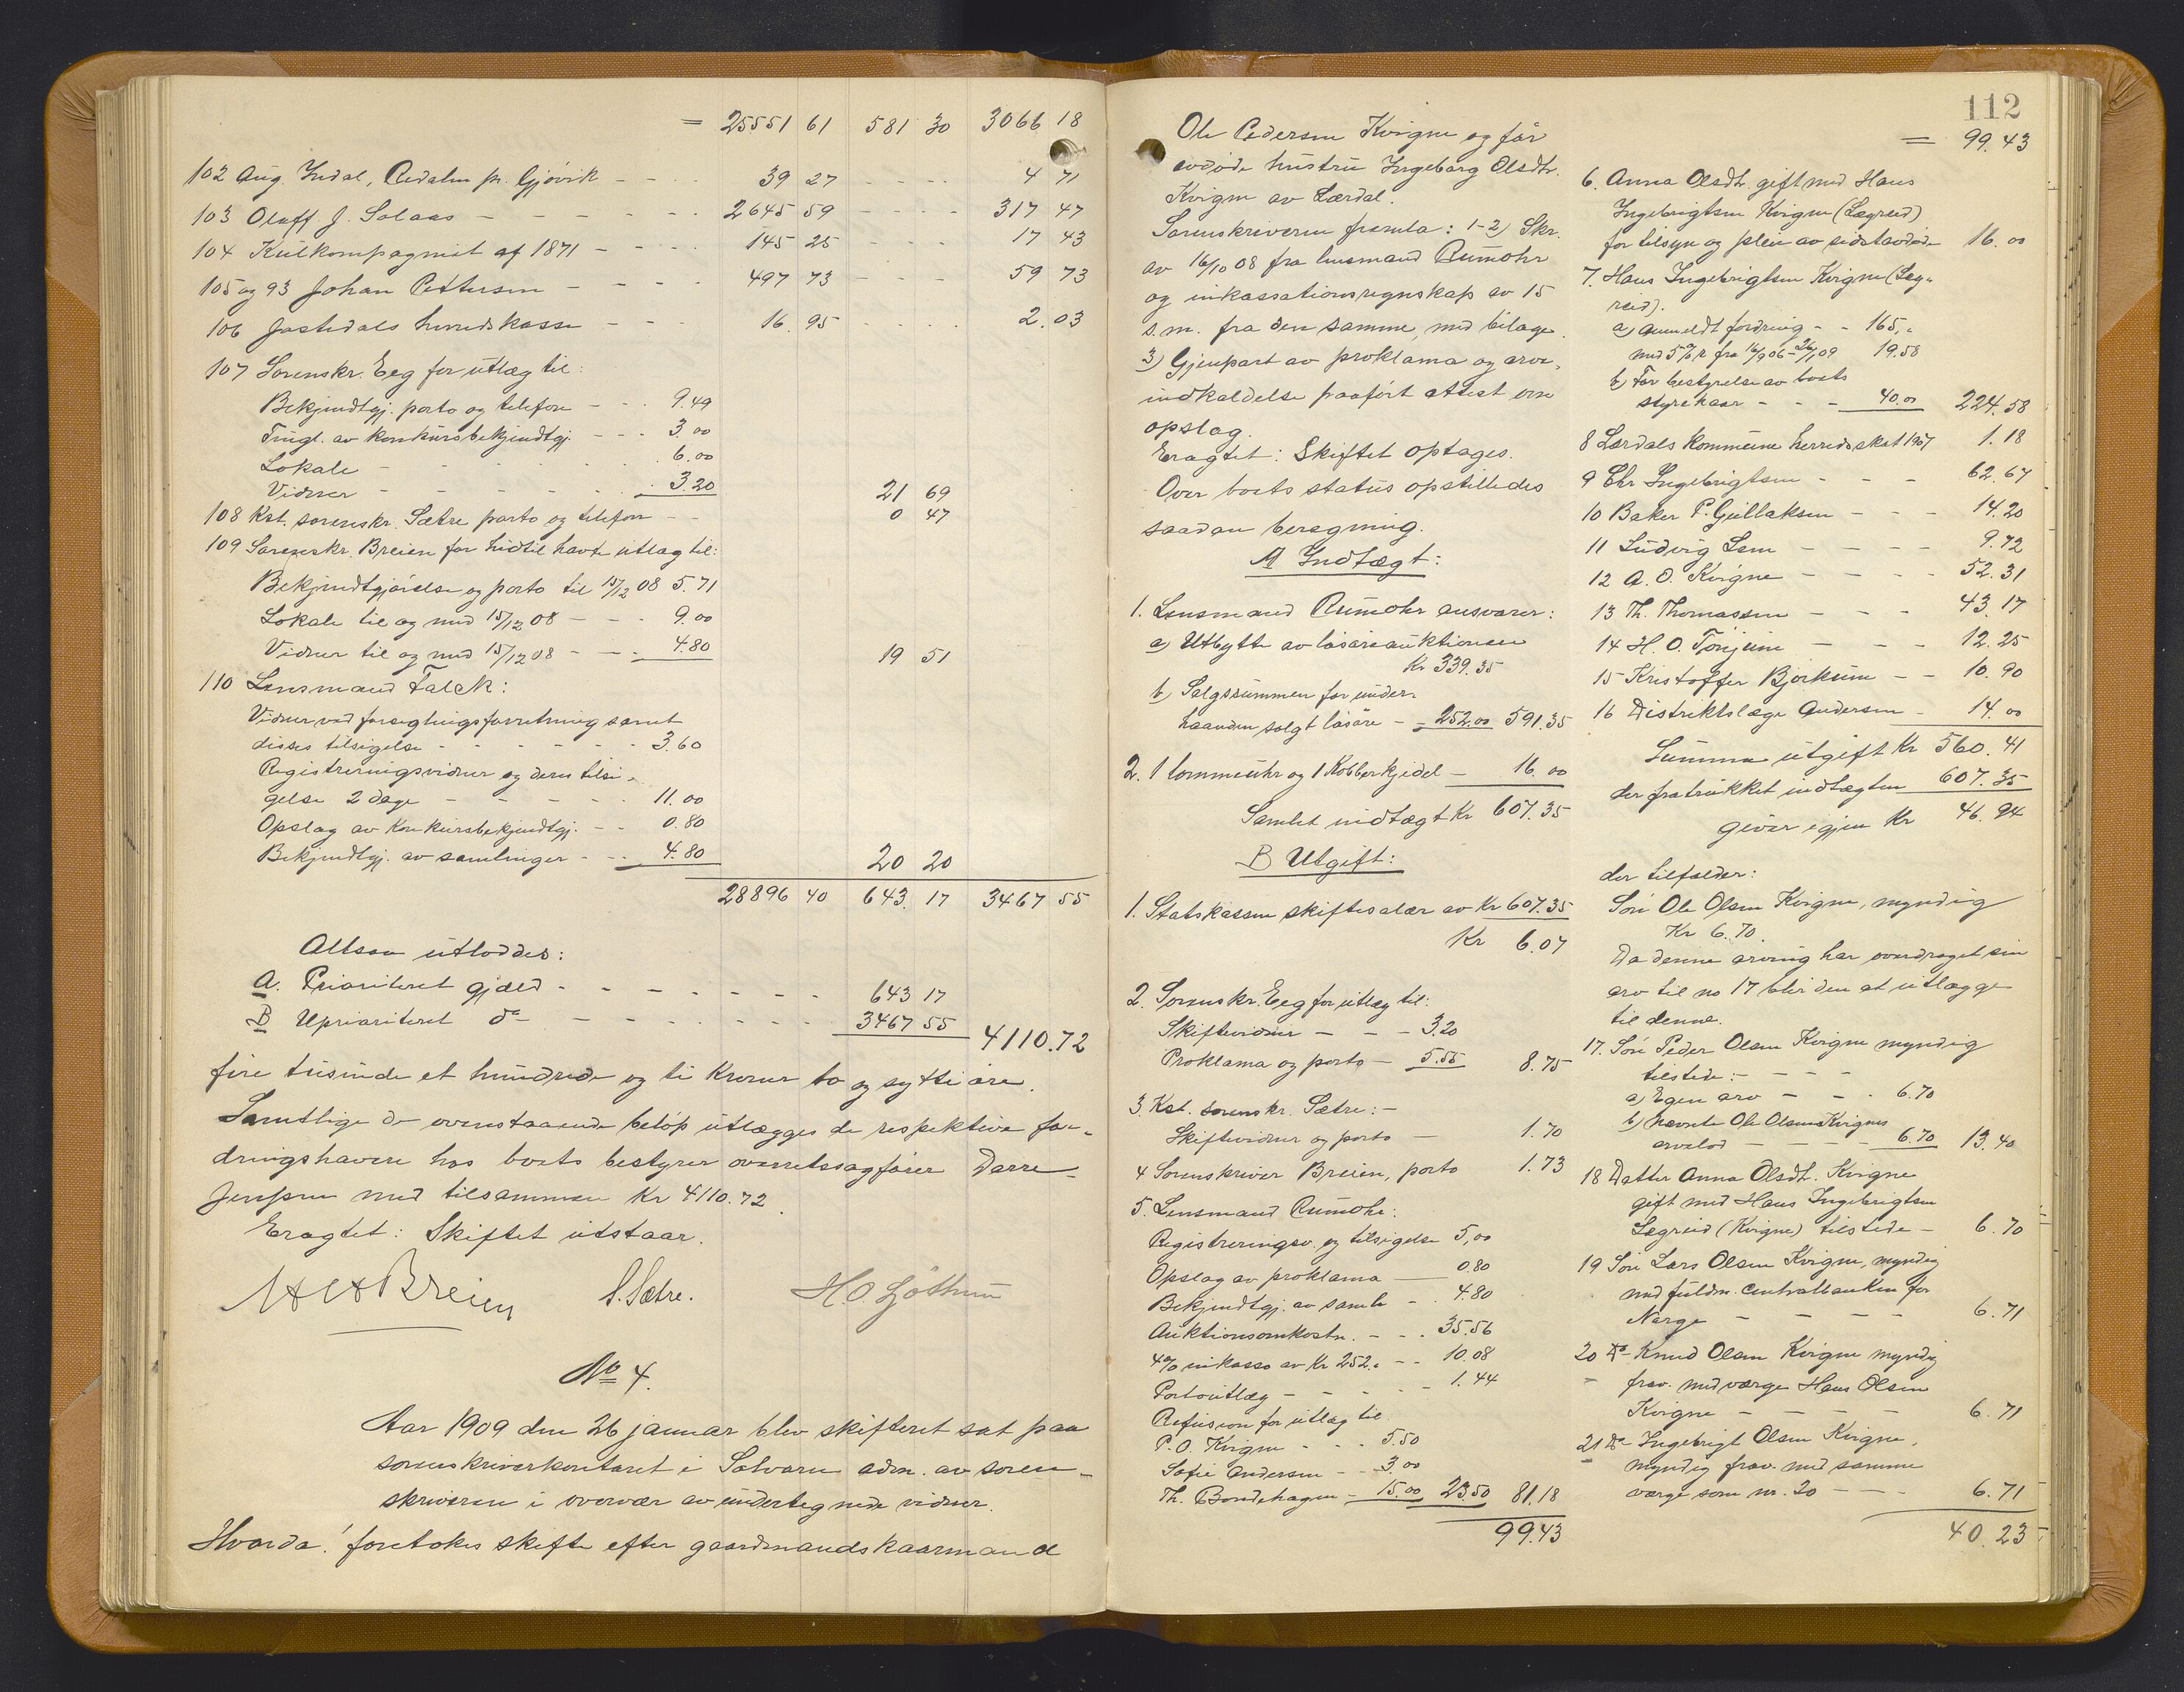 = 25551 61 581 30 3066 18
102 Aug. Indal, Redalen pr. Gjövik - - 39 27 - - - - 4 71
103 Oluff. J. Solaas - - - - - - 2645 59 - - - - 317 47
104 Kulkompagniet af 1871 - - - - 145 25 - - - 17 43
105 og 93 Johan Pettersen - - - - 497 73 - - - 59 73
106 Jostedals herredskasse - - - 16.95 - - - - 2.03
107 Sorenskr. Eeg for utlæg til:
Bekjendtgj. porto og telefon - - - 9.49
Tingl. av konkursbekjendtgj. - - - 3.00
Lokale - - - - - - 6.00
Vidner - - - - - - 3.20 21 69
108 Kst. sorenskr. Sætre porto og telefon - - 0 47
109 Sorenskr. Breien for hidtil havt utlæg til:
Bekjendtgjörelse og porto til 15/12 08 5.71
Lokale til og med 15/12 08 - - - 9.00
Vidner til og med 15/12 08 - - - 4.80 19 51
110 Lensmand Falck:
Vidner ved forseglingsforretning samt
disses tilsigelse - - - - - - 3.60
Registreringsvidner og deres tilsi-
gelse 2 dage - - - - - 11.00
Opslag av konkursbekjendtgj. - - 0.80
Bekjendtgj. av samlinger - - - 4.80 20 20
28896 40 643.17 3467 55
Altsaa utloddes:
A. Prioriteret gjæld - - - - - - - 643 17
B Uprioriteret do - - - - - - - 3467 55 4110.72
fire tusinde et hundrede og ti Kroner to og sytti öre.
Samtlige de ovenstaaende belöp utlægges de respektive for-
dringshavere hos boets bestyrer overretssagförer Darre
Jenssen med tilsammen Kr 4110.72.
Eragtet: Skiftet utstaar.
H H Breien S. Sætre. H. O. Gjöthun
No 4.
Aar 1909 den 26 januar blev skifteret sat paa
sorenskriverkontoret i Solvorn adm. av soren-
skriveren i overvær av undertegnede vidner.
Hvorda! foretokes skifte efter gaardmands kaarmand
112
Ole Pedersen Kvigne og før
avdøde hustru Ingeborg Olsdtr.
Kvigne av Lærdal.
Sorenskriveren fremla: 1-2) Skr.
av 16/10 08 fra lensmand Rumohr
og inkassationsregnskap av 15
s.m. fra den samme, med bilage
3) Gjenpart av proklama og arve-
indkaldelse paaført attest om
opslag.
Eragtet: Skiftet optages.
Over boets status opstilledes
saadan beregning.
A Indtægt:
1. Lensmand Rumohr ansvarer:
a) Utbytte av løsøreauktionen
Kr 339.35
b) Salgssummen for under-
haanden solgt løsøre - - 252.00 591.35
2. 1 lommeuhr og 1 Kobberkjedel - 16.00
Samlet indtægt Kr 607.35
B Utgift:
1. Statskassen skiftesalær av Kr 607.35
Kr 6.07
2. Sorenskr. Eeg for utlæg til:
Skiftevidner - - - 3.20
Proklama og porto - 5.55 8.75
3. Kst. sorenskr. Sætre: -
Skiftevidner og porto - 1.70
4 Sorenskriver Breien, porto 1.73
5. Lensmand Rumohr:
Registreringsv. og tilsigelse 5,00
Opslag av proklama - 0.80
Bekjendtgj. av samli - . 4.80
Auktionsomkostn. - - . 35.56
4% inkasso av Kr 252.- - - 10.08
Portoutlæg - - - - - 1.44
Refusion for utlæg til
P. O. Kvigne - - - 5.50
Sofie Andersen - - 3.00
Th. Bondehagen - 15.00 23.50 81.18
99.43
= 99.43
6. Anna Olsdtr. gift med Hans
Ingebrigtsen Kvigne (Lægreid)
for tilsyn og pleie av sidstavdøde 16.00
7. Hans Ingebrigtsen Kvigne (Læg-
reid).
a) anmeldt fordring - - 165,-
med 5% r fra 16/9 06 - 26/1 09 19.58
b) For bestyrelse av boets
styrekaar - - - 40.00 224.58
8 Lærdals kommune herredsskat 1907 1.18
9 Chr Ingebrigtsen - - - 62.67
10 Baker P. Gjullaksen - - - 14.20
11 Ludvig Lem - - - - 9.72
12 A. O. Kvigne - - - - 52.31
13 Th. Thomassen - - - 43.17
14 H. O. Tønjum - - - 12.25
15 Kristoffer Bjørkum - - 10.90
16 Distriktslæge Andersen - 14.00
Summa utgift Kr 560.41
der fratrukket indtægten 607.35
giver igjen Kr 46.94
der tilfalder:
Søn Ole Olsen Kvigne, myndig
Kr 6.70.
Da denne arving har overdraget sin
arv til no 17 blir den at utlægge
til denne.
17. Søn Peder Olsen Kvigne myndig
tilstede: - - - -
a) Egen arv - - . 6.70
b) nævnte Ole Olsen Kvignes
arvelod - - - - 6.70 13.40
18 Datter Anna Olsdtr. Kvigne
gift med Hans Ingebrigtsen
Lægreid (Kvigne) tilstede - 6.70
19 Søn Lars Olsen Kvigne, myndig
med fuldm. Centralbanken for
Norge - - - - 6.71
20 do Knud Olsen Kvigne myndig
frav. med værge Hans Olsen
Kvigne - - - - 6.71
21 do Ingebrigt Olsen Kvigne,
myndig frav. med samme
værge som nr. 20 - - - 6.71
40.23